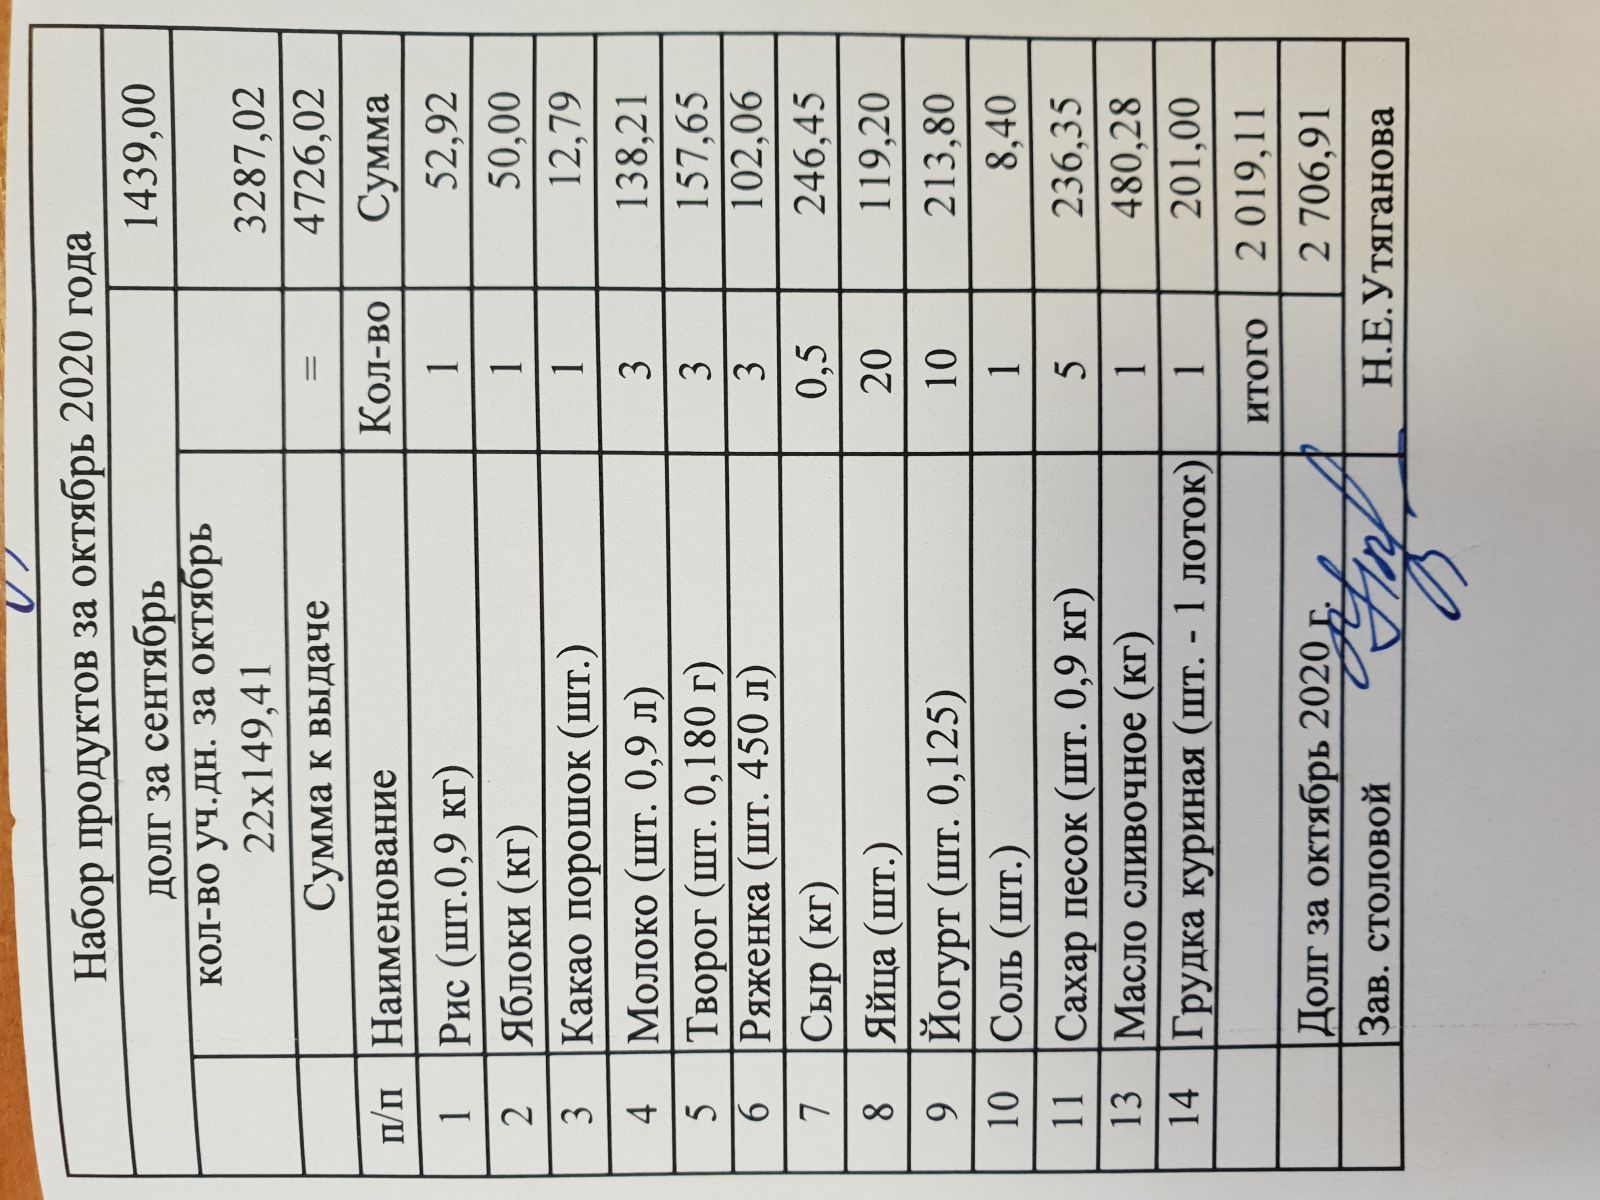 Набор продуктов за октябрь 2020 года
долг за сентябрь 1439,00
кол-во уч.дн. за октябрь
22х149,41 3287,02
Сумма к выдаче = 4726,02
п/п Наименование Кол-во Сумма
1 Рис (шт.0,9 кг) 1 52,92
2 Яблоки (кг) 1 50,00
3 Какао порошок (шт.) 1 12,79
4 Молоко (шт. 0,9 л) 3 138,21
5 Творог (шт. 0,180 г) 3 157,65
6 Ряженка (шт. 450 л) 3 102,06
7 Сыр (кг) 0,5 246,45
8 Яйца (шт.) 20 119,20
9 Йогурт (шт. 0,125) 10 213,80
10 Соль (шт.) 1 8,40
11 Сахар песок (шт. 0,9 кг) 5 236,35
13 Масло сливочное (кг) 1 480,28
14 Грудка куриная (шт. - 1 лоток) 1 201,00
итого 2 019,11
Долг за октябрь 2020 г. 2 706,91
Зав. столовой Н.Е.Утяганова